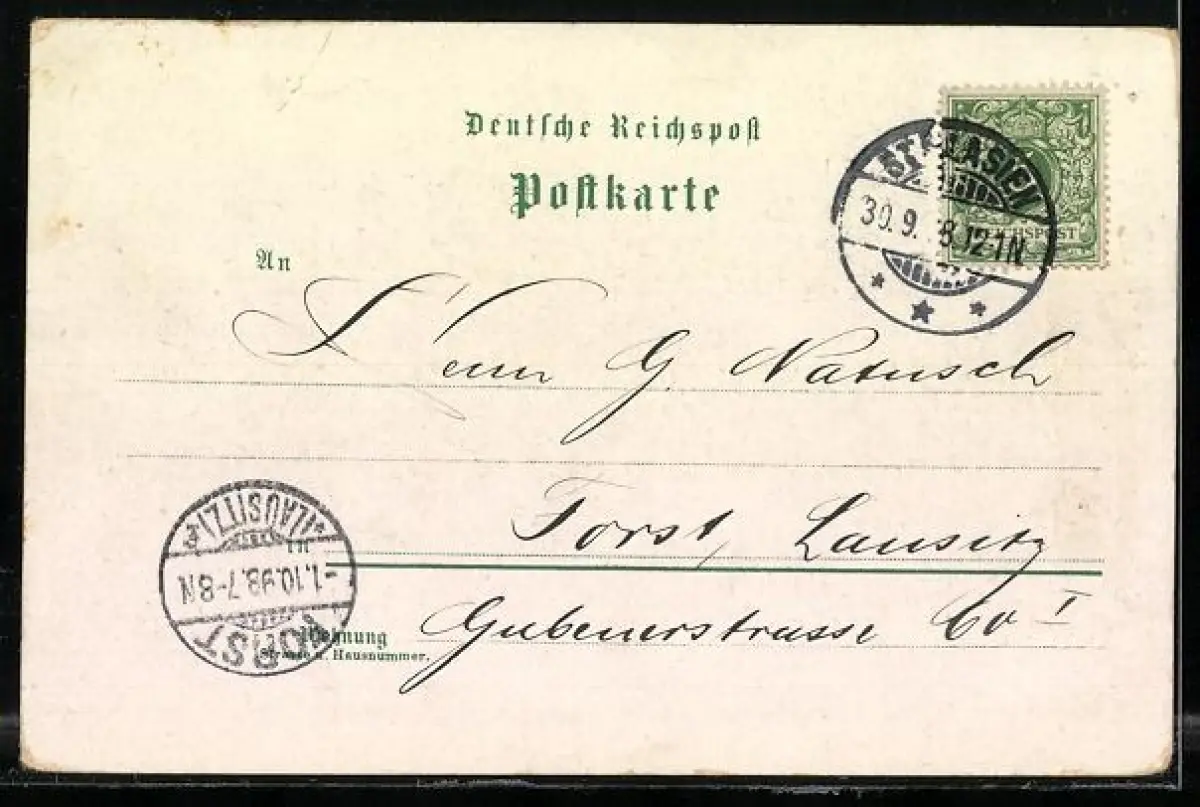 Deutsche Reichspost
Postkarte
ST. BLASIEN
30.9. 98.12-1N.
REICHSPOST
An
G. Natusch
Forst, Lausitz
in
Gubenerstrasse 60 I
Wohnung
Strasse u. Hausnummer.
FORST
-1.10.98.7-8N
*(LAUSITZ)*